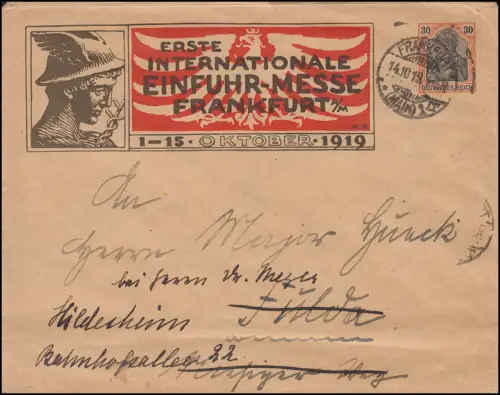 ERSTE
INTERNATIONALE
EINFUHR-MESSE
FRANKFURT a/M
1-15. OKTOBER 1919
30 30
DEUTSCHES REICH
14.10.19
(MAIN) 1
An
Herrn Major Hueck
bei Herrn Dr. Meyer
Hildesheim Fulda
Bahnhofsallee 22
Weg